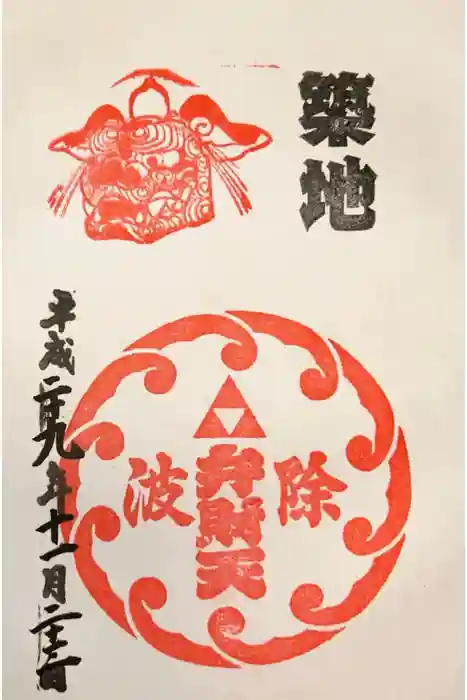 築地
波除
弁財天
平成二十九年十一月二十三日